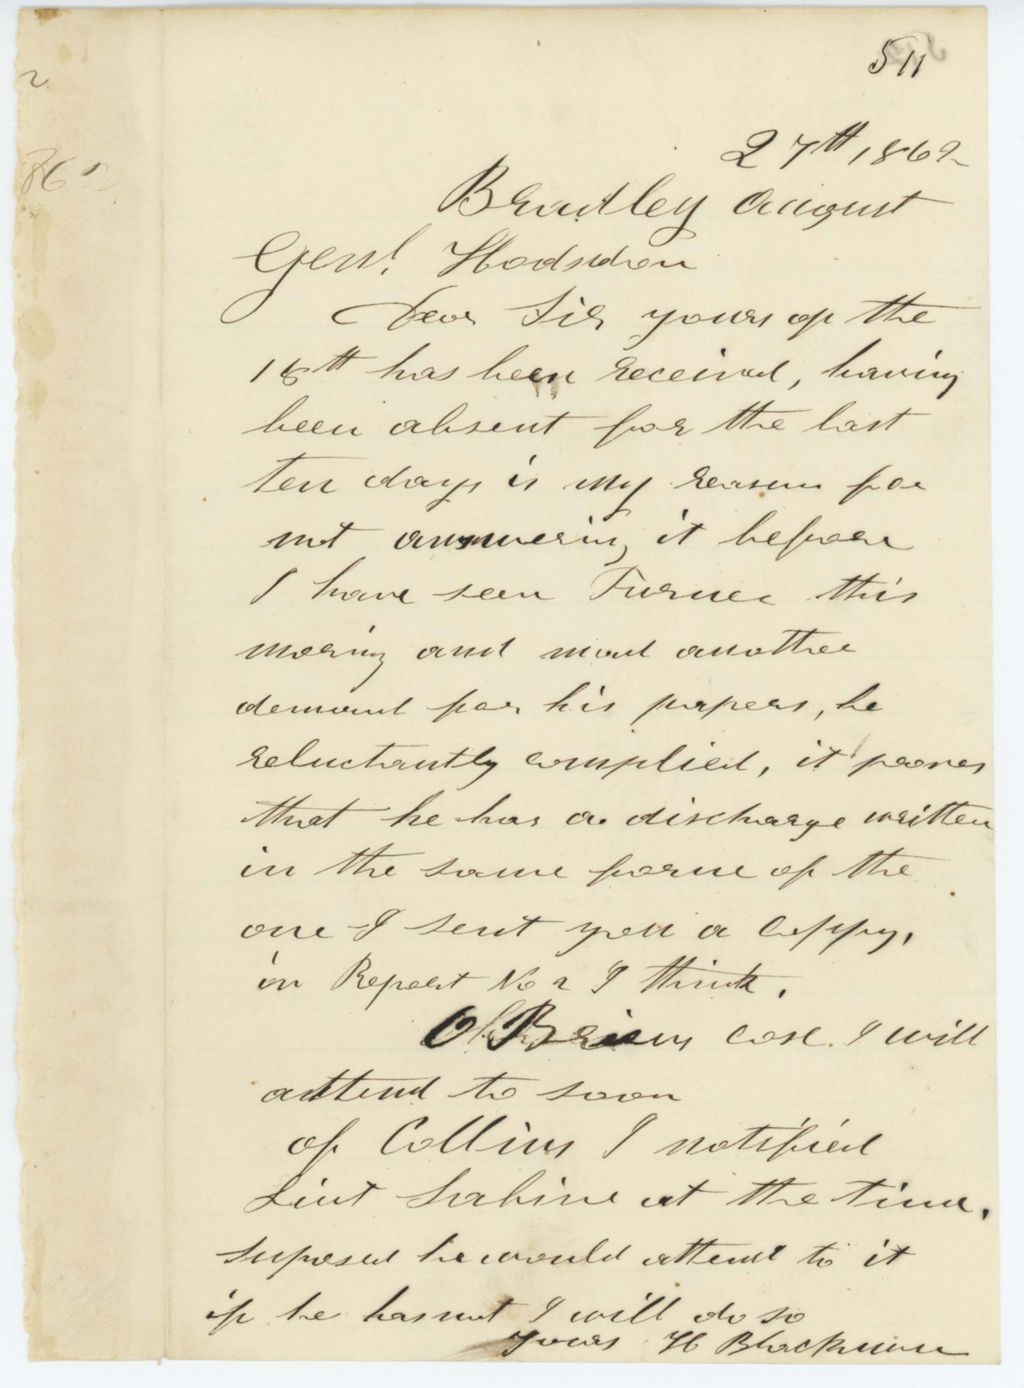 511
27th 1862
Bradley August
Genl. Hodsdon
Dear Sir yours of the
18th has been received, having
been absent for the last
ten days is my reason for
not answering it before
I have seen Turner this
moring and mad another
demand for his papers, he
reluctantly complied, it proves
that he has a discharge written
in the same forme of the
one I sent you a coppy,
in Report No 2 I think.
O Briens case. I will
attend to soon
of Collins I notified
Liut Sabine at the time.
Suposed he would attend to it
if he has not I will do so
Yours H Blackman